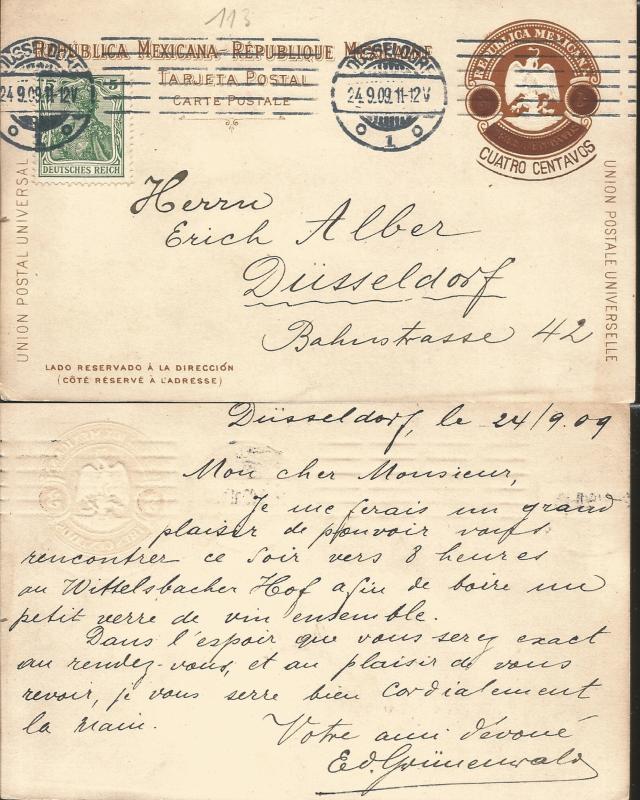 113
REPÚBLICA MEXICANA–RÉPUBLIQUE MEXICAINE
TARJETA POSTAL
CARTE POSTALE
DÜSSELDORF
24.9.09.11-12V
1
DÜSSELDORF
24.9.09.11-12V
1
5 5
DEUTSCHES REICH
REPUBLICA MEXICANA
CUATRO CENTAVOS
UNION POSTAL UNIVERSAL
UNION POSTALE UNIVERSELLE
Herrn
Erich Alber
Düsseldorf
Bahnstrasse 42
LADO RESERVADO Á LA DIRECCIÓN
(CÔTÉ RÉSERVÉ À L'ADRESSE)
Düsseldorf, le 24/9.09
Mon cher Monsieur,
Je me ferais un grand
plaisir de pouvoir vous
rencontrer ce soir vers 8 heures
au Wittelsbacher Hof afin de boire un
petit verre de vin ensemble.
Dans l'espoir que vous serez exact
au rendez-vous, et au plaisir de vous
revoir, je vous serre bien cordialement
la main.
Votre ami dévoué
Ed. Grünenwald